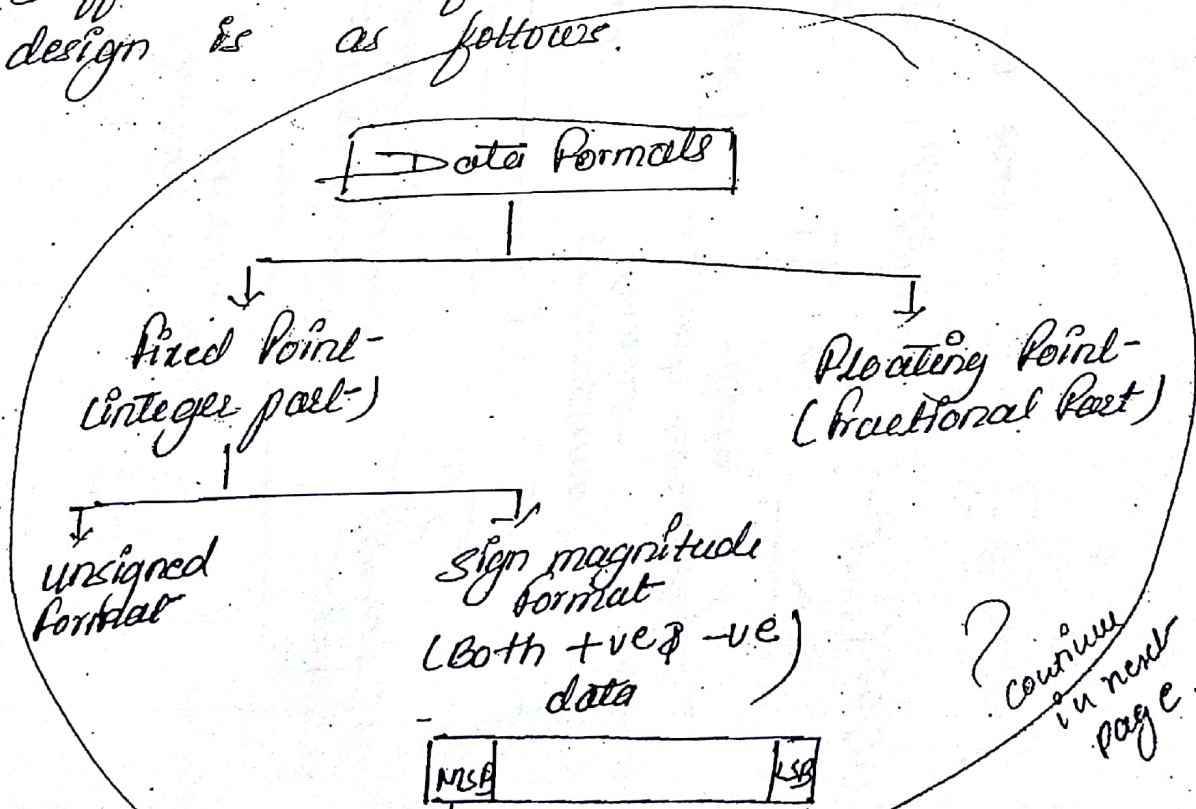 design is as follows.
Data Formats
Fixed Point
(integer part)
Floating Point
(Fractional Part)
unsigned
format
sign magnitude
format
(Both +ve & -ve)
data
? continue
in next
page.
MSB LSB